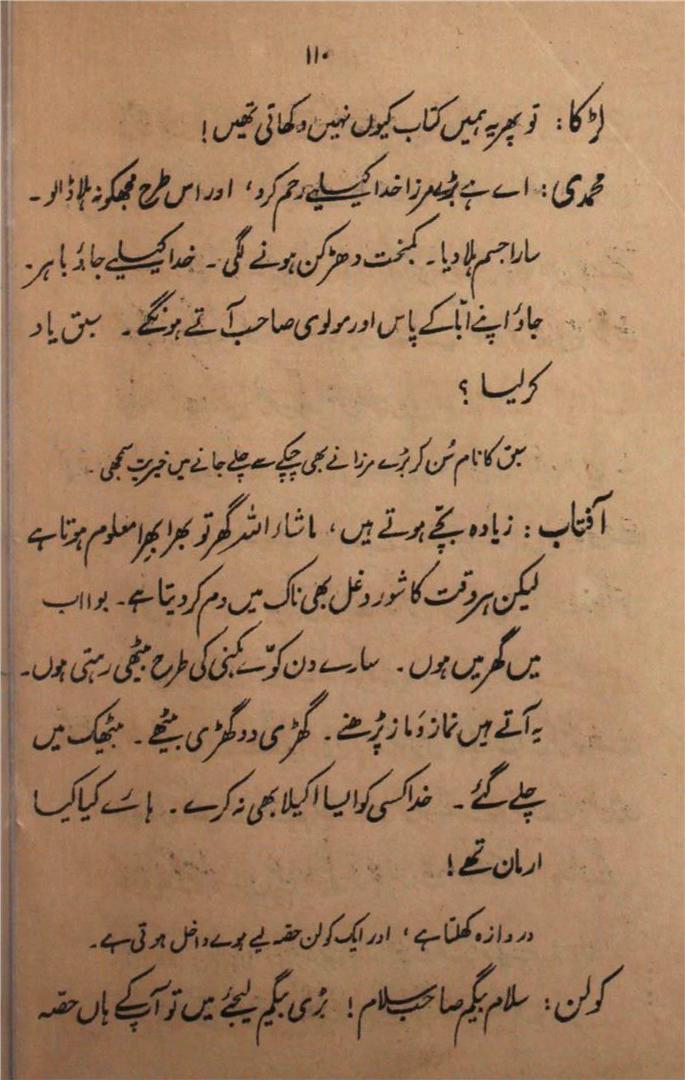 ۱۱۰
لڑکا: تو پھر یہ ہمیں کتاب کیوں نہیں دکھاتی تھیں!
محمدی: اے ہے بڑے مرزا خدا کیلیے رحم کرو، اور اس طرح مجھکو نہ ہلا ڈالو۔
سارا جسم ہلا دیا۔ کمبخت دھڑکن ہونے لگی۔ خدا کیلیے جاؤ باہر۔
جاؤ اپنے ابّا کے پاس اور مولوی صاحب آتے ہونگے۔ سبق یاد
کر لیا؟
سبق کا نام سُن کر بڑے مرزا نے بھی چپکے سے چلے جانے میں خیریت سمجھی۔
آفتاب: زیادہ بچّے ہوتے ہیں، ماشاء اللہ گھر تو بھرا بھرا معلوم ہوتا ہے
لیکن ہر وقت کا شور و غل بھی ناک میں دم کر دیتا ہے۔ بوا اب
میں گھر میں ہوں۔ سارے دن کوّے کمبنی کی طرح بیٹھی رہتی ہوں۔
یہ آتے ہیں نماز وماز پڑھنے۔ گھڑی دو گھڑی بیٹھے۔ بیٹھک میں
چلے گئے۔ خدا کسی کو ایسا اکیلا بھی نہ کرے۔ ہائے کیا کیا
ارمان تھے!
دروازہ کھلتا ہے، اور ایک کولن حقہ لیے ہوے داخل ہوتی ہے۔
کولن: سلام بیگم صاحب سلام! بڑی بیگم لیجئے میں تو آپ کے ہاں حقہ